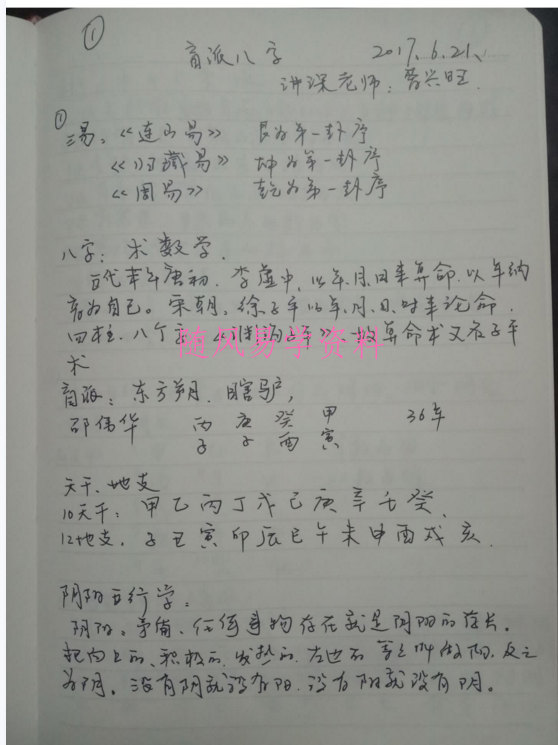 ①
盲派八字 2017.6.21、
讲课老师： 兴旺
① 三易：《连山易》 艮为第一卦序
《归藏易》 坤为第一卦序
《周易》 乾为第一卦序
八字：术数学.
古代 唐初. 李虚中. 以年.月.日来算命. 以年纳
音为自己。宋朝. 徐子平以年.月.日.时来论命.
四柱. 八个字. 故算命术又名子平
术
随风易学资料
盲派：东方朔. 瞎驴,
邵伟华 丙 庚 癸 甲 36年
子 子 酉 寅
天干、地支
10天干：甲乙丙丁戊己庚辛壬癸.
12地支. 子丑寅卯辰巳午未申酉戌亥.
阴阳五行学：
阴阳。矛盾. 任何事物存在就是阴阳的
把向上的、积极的. 发热的. 左边的 等之叫做阳. 反之
为阴。没有阴就没有阳. 没有阳就没有阴。